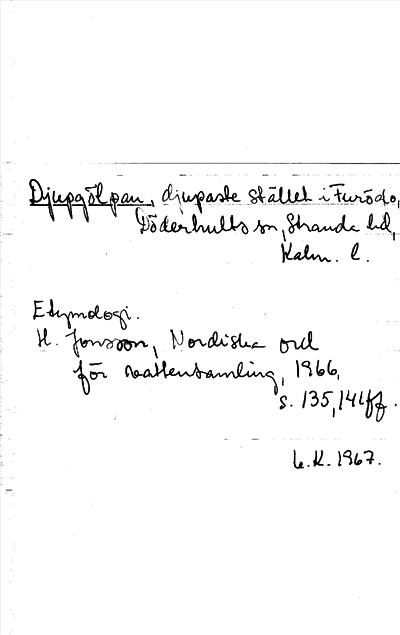 Djupgölpan, djupaste stället i Furödo,
Döderhults sn, Stranda hd,
Kalm. l.
Etymologi.
H. Jonsson, Nordiska ord
för vattensamling, 1966,
s. 135, 141ff.
L.K. 1967.